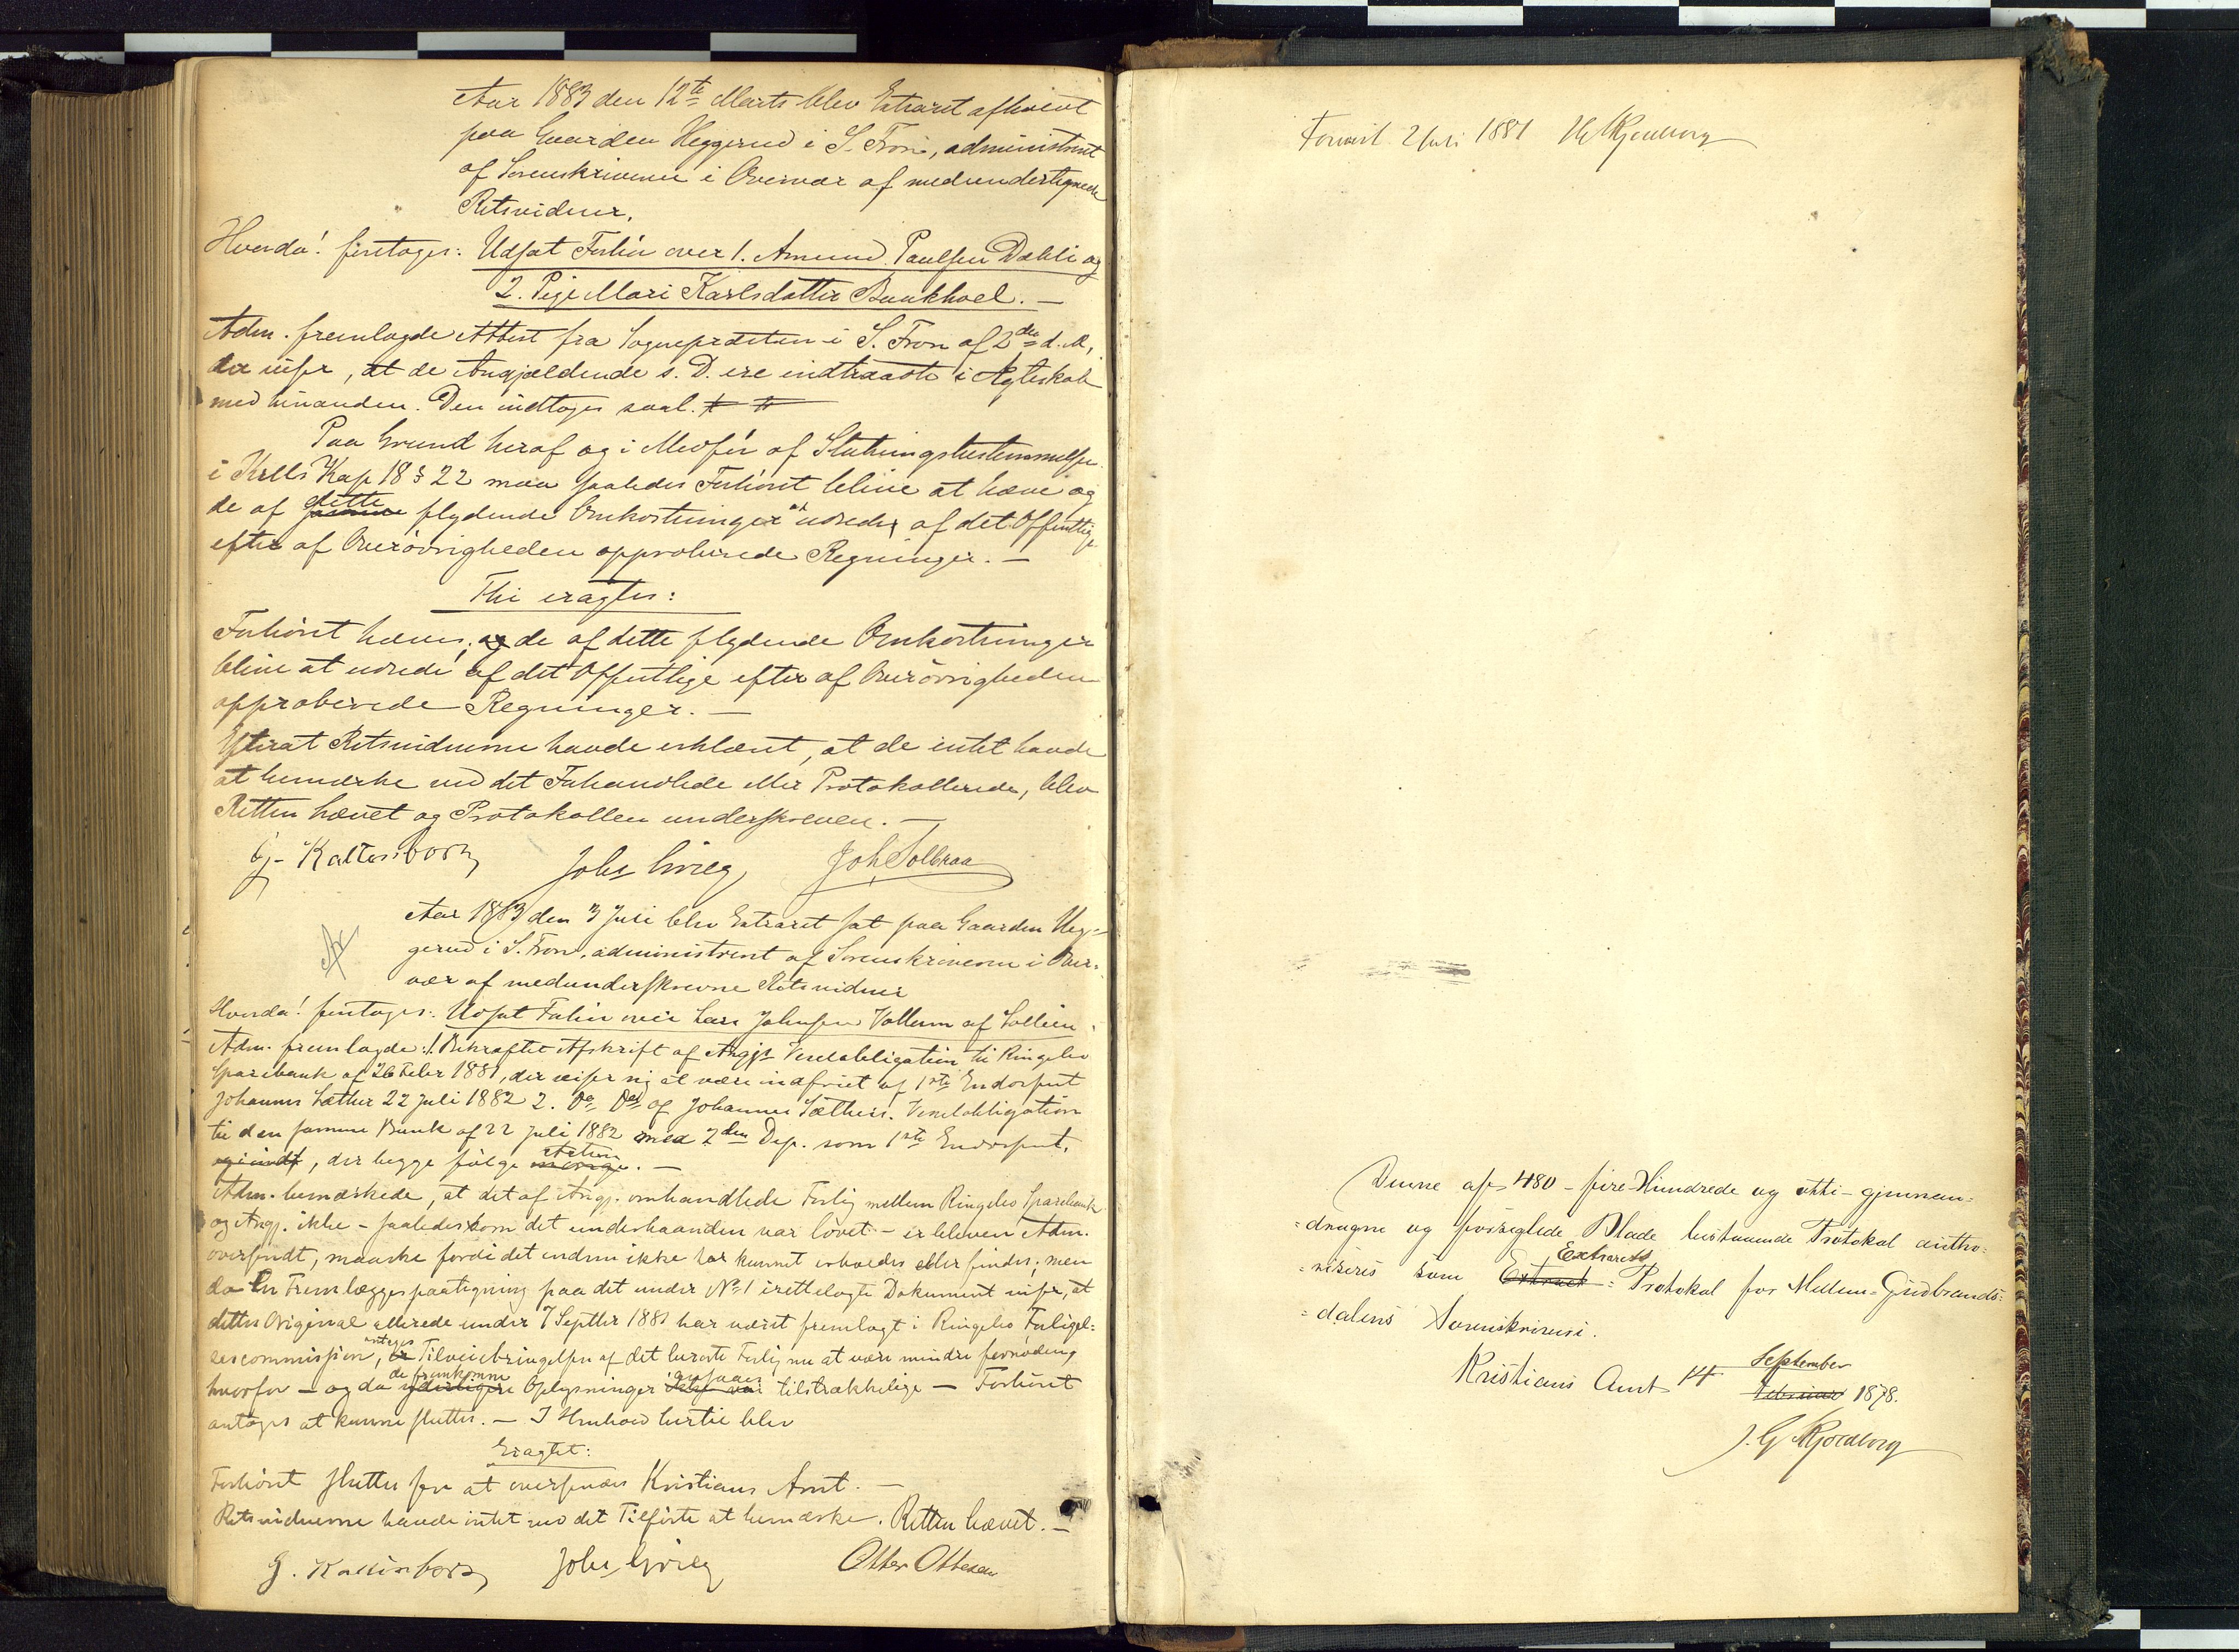 Aar 1883 den 12te Marts blev Extraret afholdt
paa Gaarden Heggerud i S. Fron, administreret
af Sorenskriveren i Overvær af medundertegnede
Retsvidner.
Hvorda! foretoges: Udsat Forhör over 1. Amund Paulsen Dahli og
2. Pige Mari Karlsdatter Bunkhoel. —
Adm. fremlagde Attest fra Sognepræsten i S. Fron af 2den d. M,
der viser, at de Angjældende s. D. ere indtraadte i Ægteskab
med hinanden. Den indtages saal.
Paa Grund heraf og i Medfør af Slutningsbestemmelsen
i Krlls Kap 18 § 22 maa saaledes Forhöret blive at hæve og
de af dette flydende Omkostninger at udrede af det Offentlige
efter af Overövrigheden approberede Regninger. —
Thi eragtes:
Forhöret hæves, og de af dette flydende Omkostninger
blive at udrede af det Offentlige efter af Overövrigheden
approberede Regninger. —
Efterat Retsvidnerne havde erklæret, at de intet havde
at bemærke ved det Forhandlede eller Protokollerede, blev
Retten hævet og Protokollen underskreven. —
G. Kaltenborn Johs Grieg Joh Solbraa
Aar 1883 den 3 Juli blev Extraret sat paa Gaarden Heg-
gerud i S. Fron, administreret af Sorenskriveren i Over-
vær af medunderskrevne Retsvidner
Hvorda! foretoges: Udsat Forhör over Lars Johnsen Vollum af Sollien.
Adm. fremlagde: 1. Bekræftet Afskrift af Angjs Vexelobligation til Ringebo
Sparebank af 26 Febr 1881, der viser sig at være indfriet af 1ste Endossent
Johannes Sæther 22 Juli 1882 2. Do Do af Johannes Sæthers Vexelobligation
til den samme Bank af 22 Juli 1882 med 2den Dep. som 1ste Endossent,
der begge fölge Akten. —
Adm. bemærkede, at det af Angj. omhandlede Forlig mellem Ringebo Sparebank
og Angj. ikke – saaledes som det underhaanden var lövet – er bleven Adm.
oversendt, maaske fordi det endnu ikke har kunnet erholdes eller findes; men
da en Fremlæggespaategning paa det under No 1 irettelagte Dokument viser, at
dettes Original allerede under 7 Septbr 1881 har været fremlagt i Ringebo Forligel-
sescommission, antages Tilveiebringelsen af det berörte Forlig nu at være mindre fornöden
hvorfor – og da de fremkomne Oplysninger tilstrækkelige – Forhöret
antages at kunne sluttes. — I Henhold hertil blev
Eragtet:
Forhöret sluttes for at oversendes Kristians Amt. —
Retsvidnerne havde intet ved det Tilförte at bemærke. Retten hævet. —
G. Kaltenborn Johs Grieg Otter Ottesen
Foreviist 2 Juli 1881
Denne af 480 – fire Hundrede og otti – gjennem-
-dragne og forseglede Blade bestaaende Protokol autho-
-riseres som Extrarets Protokol for Mellem-Gudbrands-
-dalens Sorenskriveri.
Kristians Amt 14 September 1878.